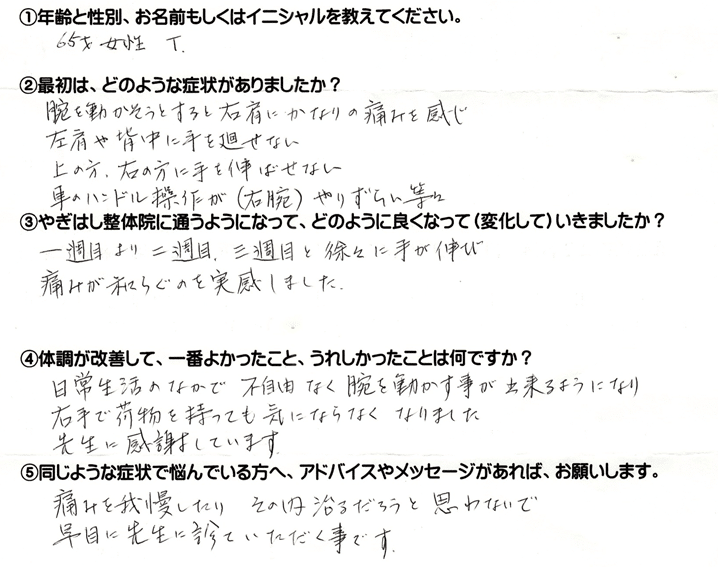 ①年齢と性別、お名前もしくはイニシャルを教えてください。
65才 女性 T.
②最初は、どのような症状がありましたか？
腕を動かそうとすると右肩にかなりの痛みを感じ
左肩や背中に手を廻せない
上の方、右の方に手を伸ばせない
車のハンドル操作が（右腕）やりずらい等々
③やぎはし整体院に通うようになって、どのように良くなって（変化して）いきましたか？
一週目より二週目、三週目と徐々に手が伸び
痛みが和らぐのを実感しました.
④体調が改善して、一番よかったこと、うれしかったことは何ですか？
日常生活のなかで 不自由なく腕を動かす事が出来るようになり
右手で荷物を持っても気にならなくなりました
先生に感謝しています.
⑤同じような症状で悩んでいる方へ、アドバイスやメッセージがあれば、お願いします。
痛みを我慢したり その内治るだろうと思わないで
早目に先生に診ていただく事です.